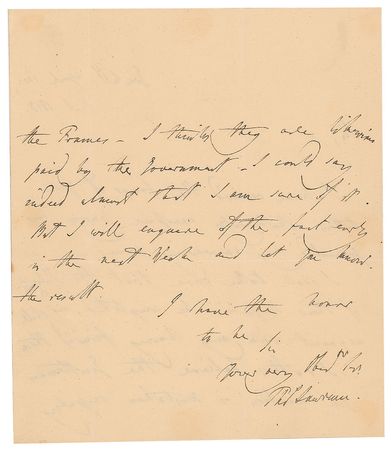 the Frames – I think they are likewise
paid by the Government – I could say
indeed almost that I am sure of it.
But I will enquire of the fact early
in the next Week and let you know
the result.
I have the honor
to be
Sir
Your very Obedt Sr.
Thos Lawrence.